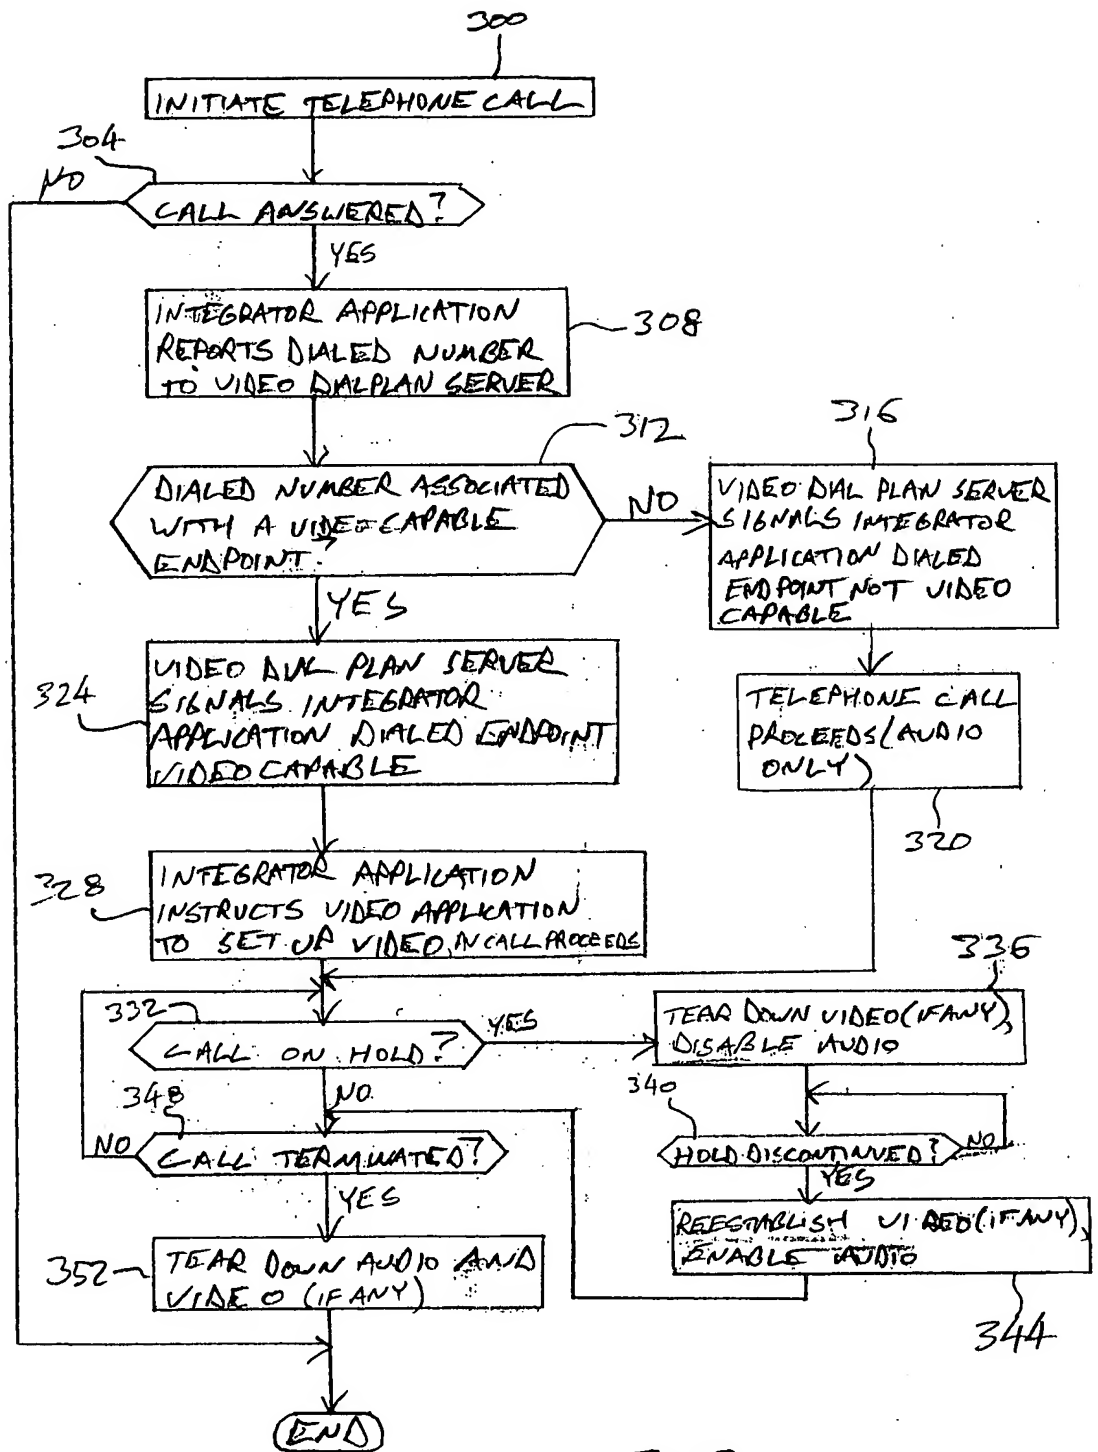 300
INITIATE TELEPHONE CALL
304
NO
CALL ANSWERED?
YES
INTEGRATOR APPLICATION
REPORTS DIALED NUMBER
TO VIDEO DIALPLAN SERVER
308
312
DIALED NUMBER ASSOCIATED
WITH A VIDEO CAPABLE
ENDPOINT?
NO
YES
316
VIDEO DIAL PLAN SERVER
SIGNALS INTEGRATOR
APPLICATION DIALED
ENDPOINT NOT VIDEO
CAPABLE
324
VIDEO DIAL PLAN SERVER
SIGNALS INTEGRATOR
APPLICATION DIALED ENDPOINT
VIDEO CAPABLE
TELEPHONE CALL
PROCEEDS (AUDIO
ONLY)
320
328
INTEGRATOR APPLICATION
INSTRUCTS VIDEO APPLICATION
TO SET UP VIDEO, CALL PROCEEDS
332
CALL ON HOLD?
YES
NO
336
TEAR DOWN VIDEO (IF ANY),
DISABLE AUDIO
340
HOLD DISCONTINUED?
NO
YES
348
NO
CALL TERMINATED?
YES
REESTABLISH VIDEO (IF ANY),
ENABLE AUDIO
344
352
TEAR DOWN AUDIO AND
VIDEO (IF ANY)
END